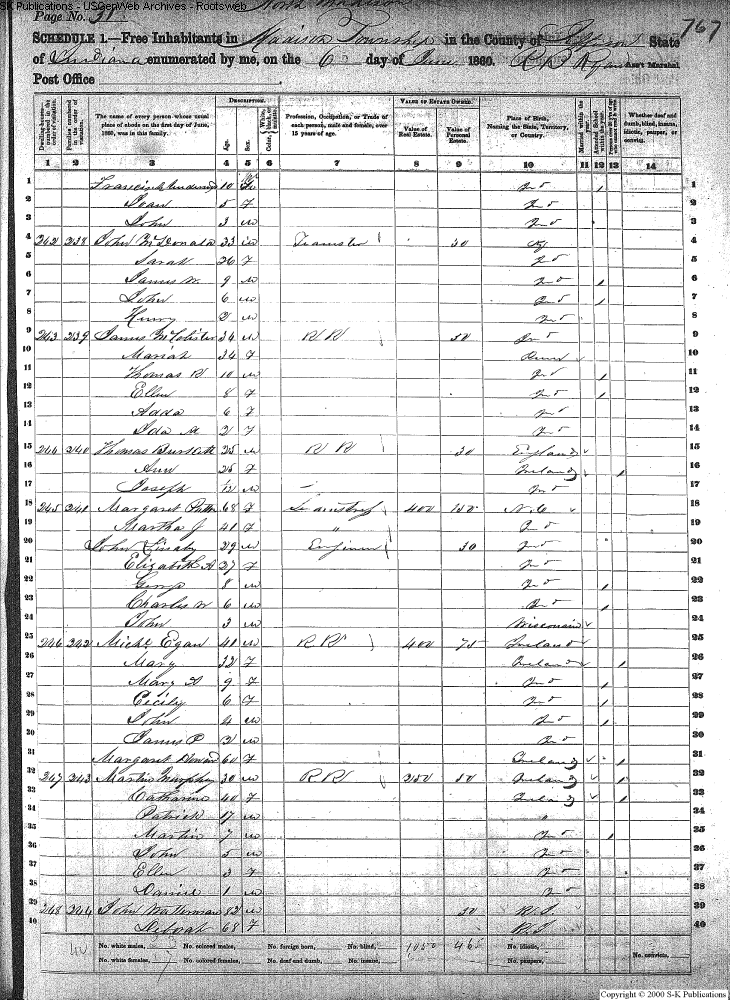 S-K Publications - USGenWeb Archives - Rootsweb
North Madison
Page No. 31
767
SCHEDULE 1.—Free Inhabitants in Madison Township in the County of Jefferson State
of Indiana enumerated by me, on the 6 day of June 1860. Ass't Marshal
Post Office
Dwelling-houses—numbered in the order of visitation.
Families numbered in the order of visitation.
The name of every person whose usual place of abode on the first day of June, 1860, was in this family.
DESCRIPTION.
Age.
Sex.
Color, White, black, or mulatto.
Profession, Occupation, or Trade of each person, male and female, over 15 years of age.
VALUE OF ESTATE OWNED.
Value of Real Estate.
Value of Personal Estate.
Place of Birth, Naming the State, Territory, or Country.
Married within the year.
Attended School within the year.
Whether deaf and dumb, blind, insane, idiotic, pauper, or convict.
1 2 3 4 5 6 7 8 9 10 11 12 13 14
1 10 Ind / 1
2 5 F Ind 2
3 John 3 m Ind 3
4 242 238 John McDonald 33 m Teamster 30 Ky 4
5 Sarah 26 F Ind 5
6 James W. 9 m Ind / 6
7 John 6 m Ind / 7
8 Henry 2 m Ind 8
9 243 239 James McColister 34 m R R 50 Ind 9
10 Mariah 34 F 10
11 Thomas 10 m Ind / 11
12 Ellen 8 F Ind / 12
13 Adda 6 F Ind 13
14 Ida M 2 F Ind 14
15 244 240 Thomas 25 m R R 30 England 15
16 Ann 25 F Ireland / 16
17 Joseph /12 m Ind 17
18 245 241 Margaret 68 F Seamstress 400 150 N.C 18
19 Martha J 41 F " Ind 19
20 John 29 m Engineer 30 Ind 20
21 Elizabeth A 27 F Ind 21
22 George 8 m Ind / 22
23 Charles W 6 m Ind / 23
24 John 3 m Wisconsin 24
25 246 242 Michl Egan 41 m R R 400 75 Ireland 25
26 Mary 32 F Ireland / 26
27 Mary A 9 F Ind / 27
28 Cecily 6 F Ind / 28
29 John 4 m Ind / 29
30 James P. 2 m Ind 30
31 Margaret 60 F Ireland / 31
32 247 243 Martin Murphy 30 m R R 250 50 Ireland / 32
33 Catharine 40 F Ireland / 33
34 Patrick 17 m " 34
35 Martin 7 m Ind / 35
36 John 5 m Ind 36
37 Ellen 3 F Ind 37
38 Daniel 1 m Ind 38
39 248 244 John Waterman 82 m 50 R.I. 39
40 68 F R.I. 40
No. white males, No. colored males, No. foreign born, No. blind, 1050 465 No. idiotic,
No. white females, 17 No. colored females, No. deaf and dumb, No. insane, No. paupers, No. convicts,
Copyright © 2000 S-K Publications